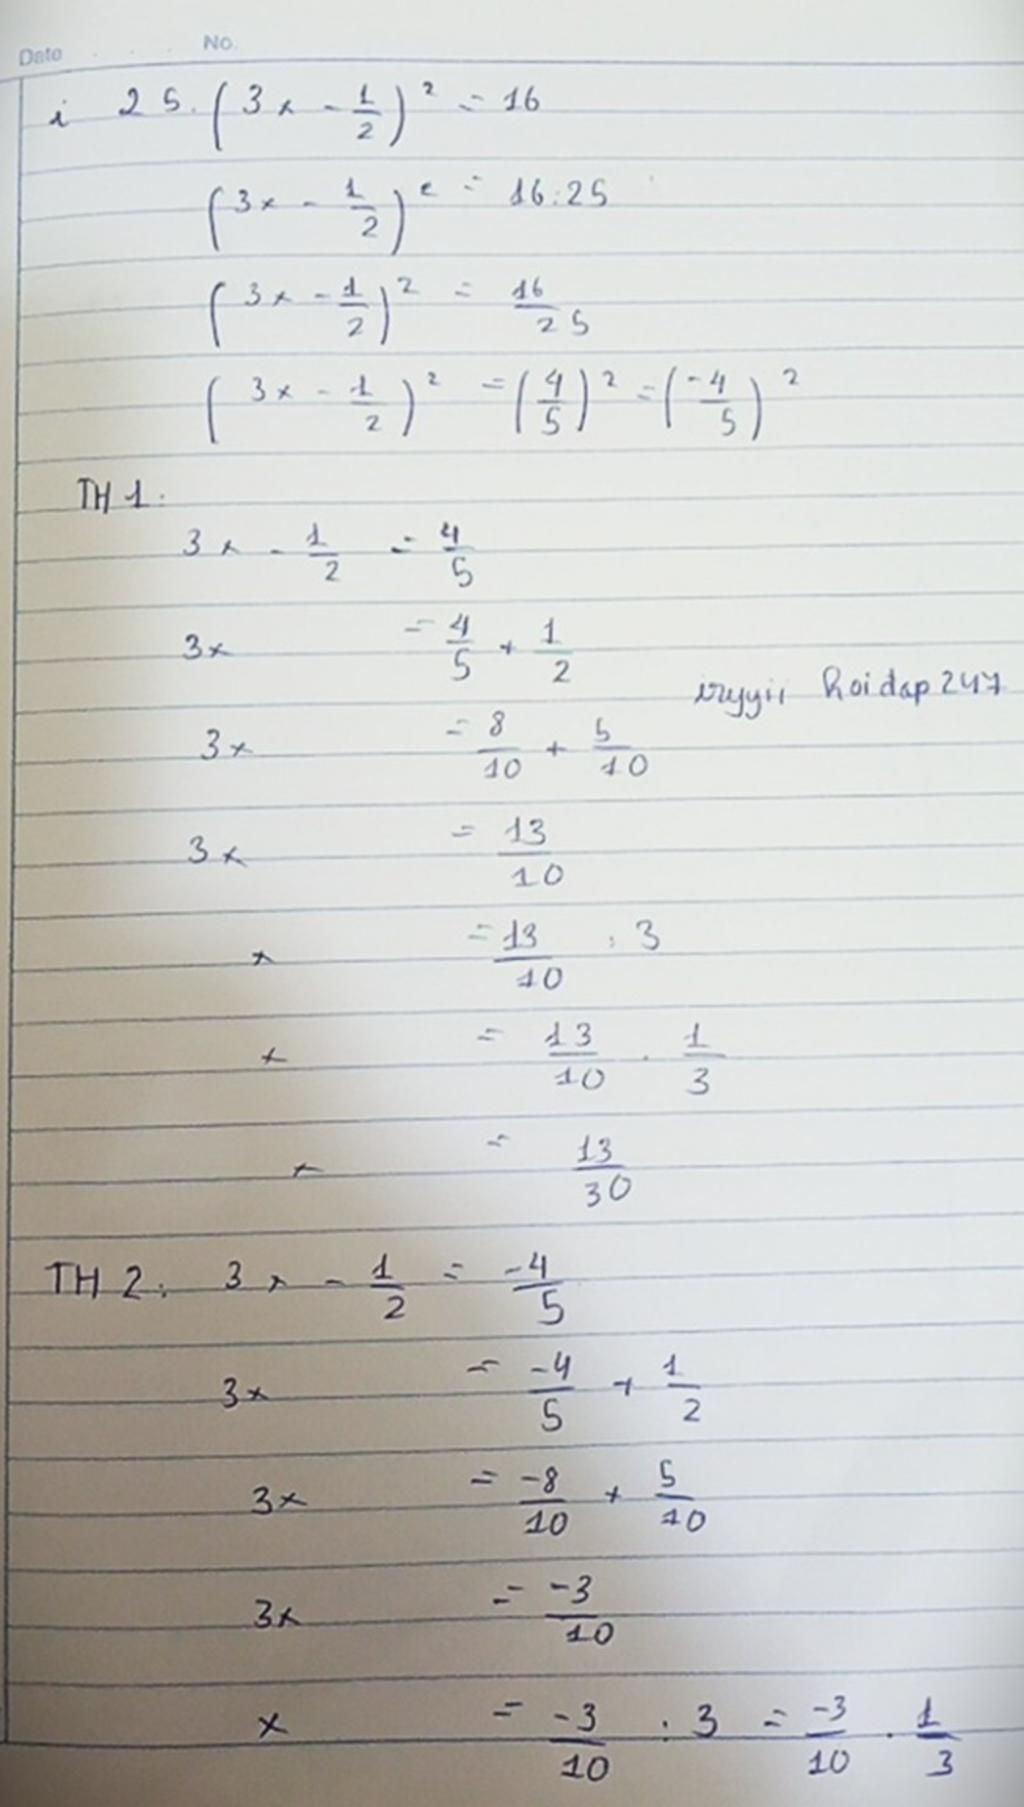 Date No.
i 25.(3x - 1/2)² = 16
(3x - 1/2)² = 16:25
(3x - 1/2)² = 16/25
(3x - 1/2)² = (4/5)² = (-4/5)²
TH1:
3x - 1/2 = 4/5
3x = 4/5 + 1/2
iryyii hoidap247
3x = 8/10 + 5/10
3x = 13/10
x = 13/10 : 3
x = 13/10 . 1/3
x = 13/30
TH2: 3x - 1/2 = -4/5
3x = -4/5 + 1/2
3x = -8/10 + 5/10
3x = -3/10
x = -3/10 : 3 = -3/10 . 1/3